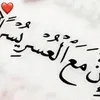 نَّ مَعَ الْعُسْرِ يُسْرًا